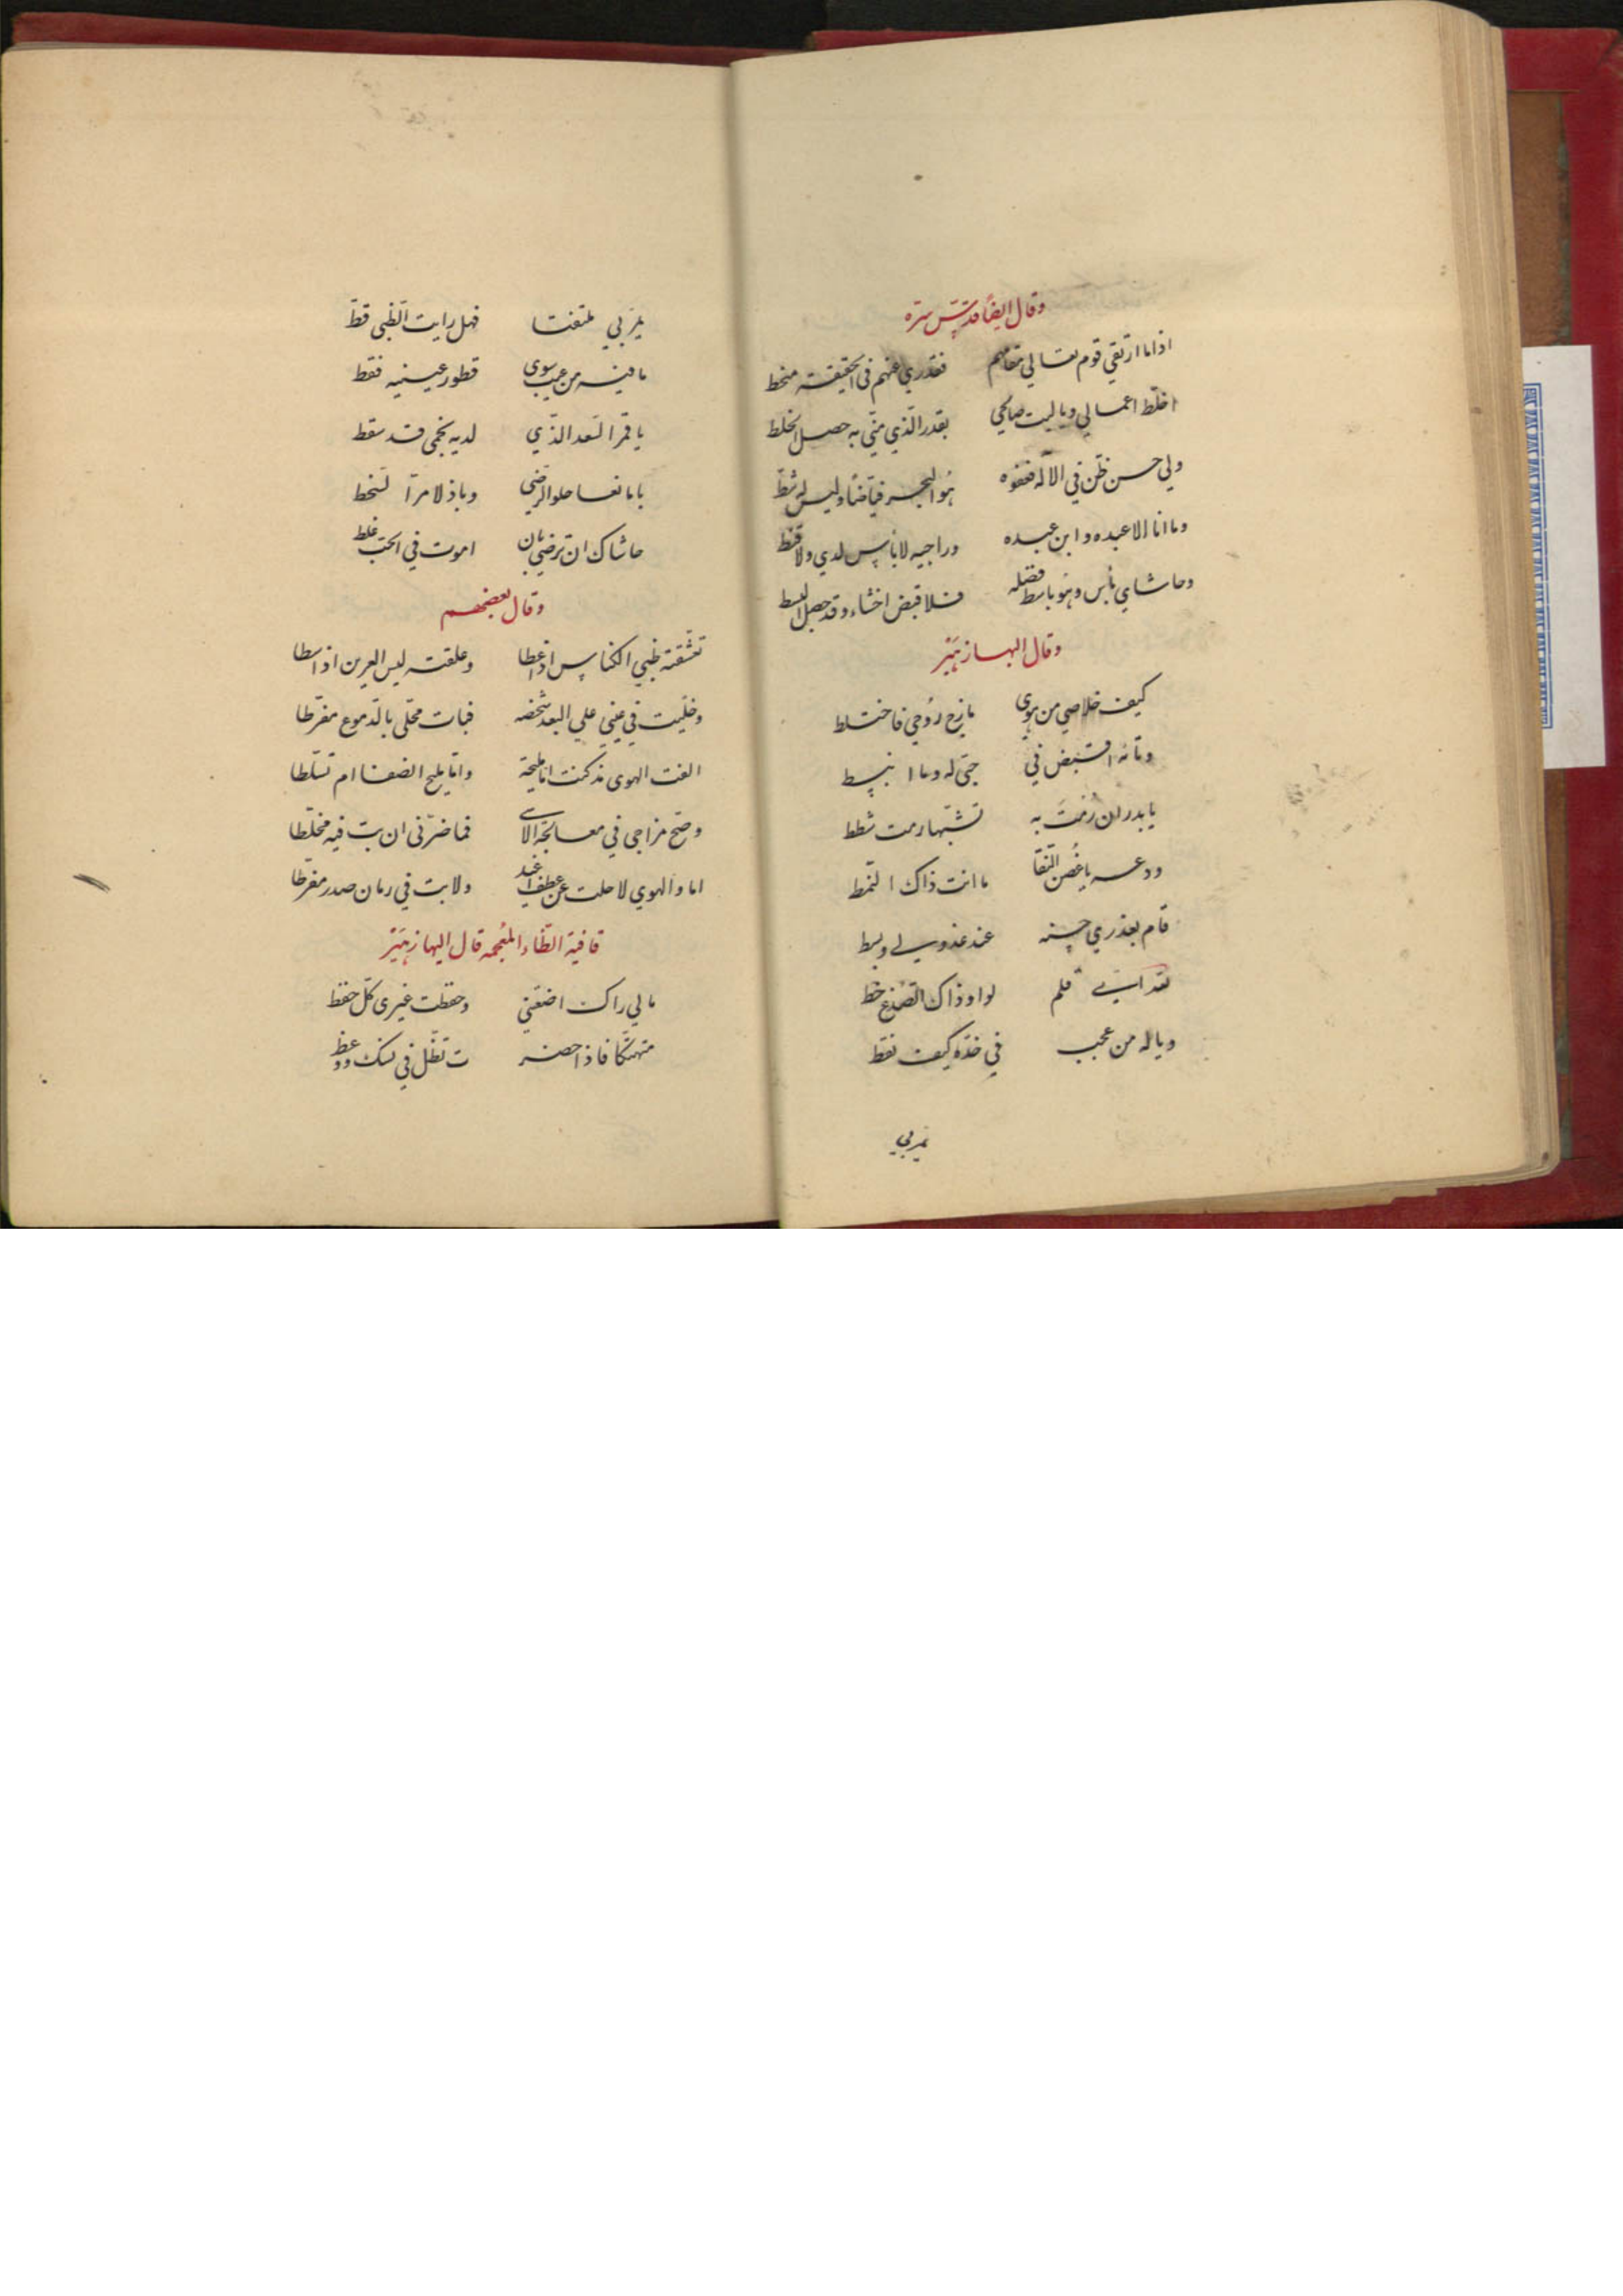 وقال ايضًا قدّس سرّه
اذا ما ارتقي قوم تعالي مقامهم فقدري عنهم في الحقيقة منحط
اخلّط اعمالي ويا ليت صالحي بقدر الّذي منّي به حصل الخلط
ولي حسن ظنّ في الاله فعفوه هو البحر فيّاضًا وليس له شطّ
وما انا الا عبده وابن عبده وراجيه لا ياس لدي ولا قنط
وحاشاي يأس وهو باسط فضله فلا قبض اخشاه وقد حصل البسط
وقال البها زهيّر
كيف خلاصي من هوي مازج روحي فاختلط
وتائه اقبض في حبّي له وما انبسط
يا بدر ان رمت به تشبّها رمت شطط
ودعه يا غصن النّقا ما انت ذاك النّمط
قام بعذري حسنه عند عذولي وبسط
لله اي قلم لواو ذاك الصّدغ خط
ويا له من عجب في خدّه كيف نقط
يمرّ بي
يمرّ بي ملتفتا فهل رايت الظّبي قطّ
ما فيه من عيب سوي فتور عينيه فقط
يا قمر السّعد الّذي لديه نجمي قد سقط
يا مانعا حلو الرّضي وباذلا مرّ السّخط
حاشاك ان ترضي بان اموت في الحبّ غلط
وقال بعضهم
تعشّقته ظبي الكناس اذا عطا وعلقته ليس العرين اذا سطا
وخلّيت في عيني علي البعد شخصه فبات محلّي بالدّموع مقرّطا
الفت الهوي مذ كنت امّا مليحة وامّا مليح الضعنا ام تسلّطا
وصحّ مزاجي في معالجة الاسي فما ضرّني ان بت فيه مخلّطا
اما والهوي لا حلت عن عطف اغيد ولا بت في رمان صدر مفرّطا
قافية الظّاء المعجمه قال البها زهيّر
مالي اراك اضعتني وحفظت غيري كلّ حفظ
متهتّكا فاذا حضر ت تظّل في نسك ووعظ